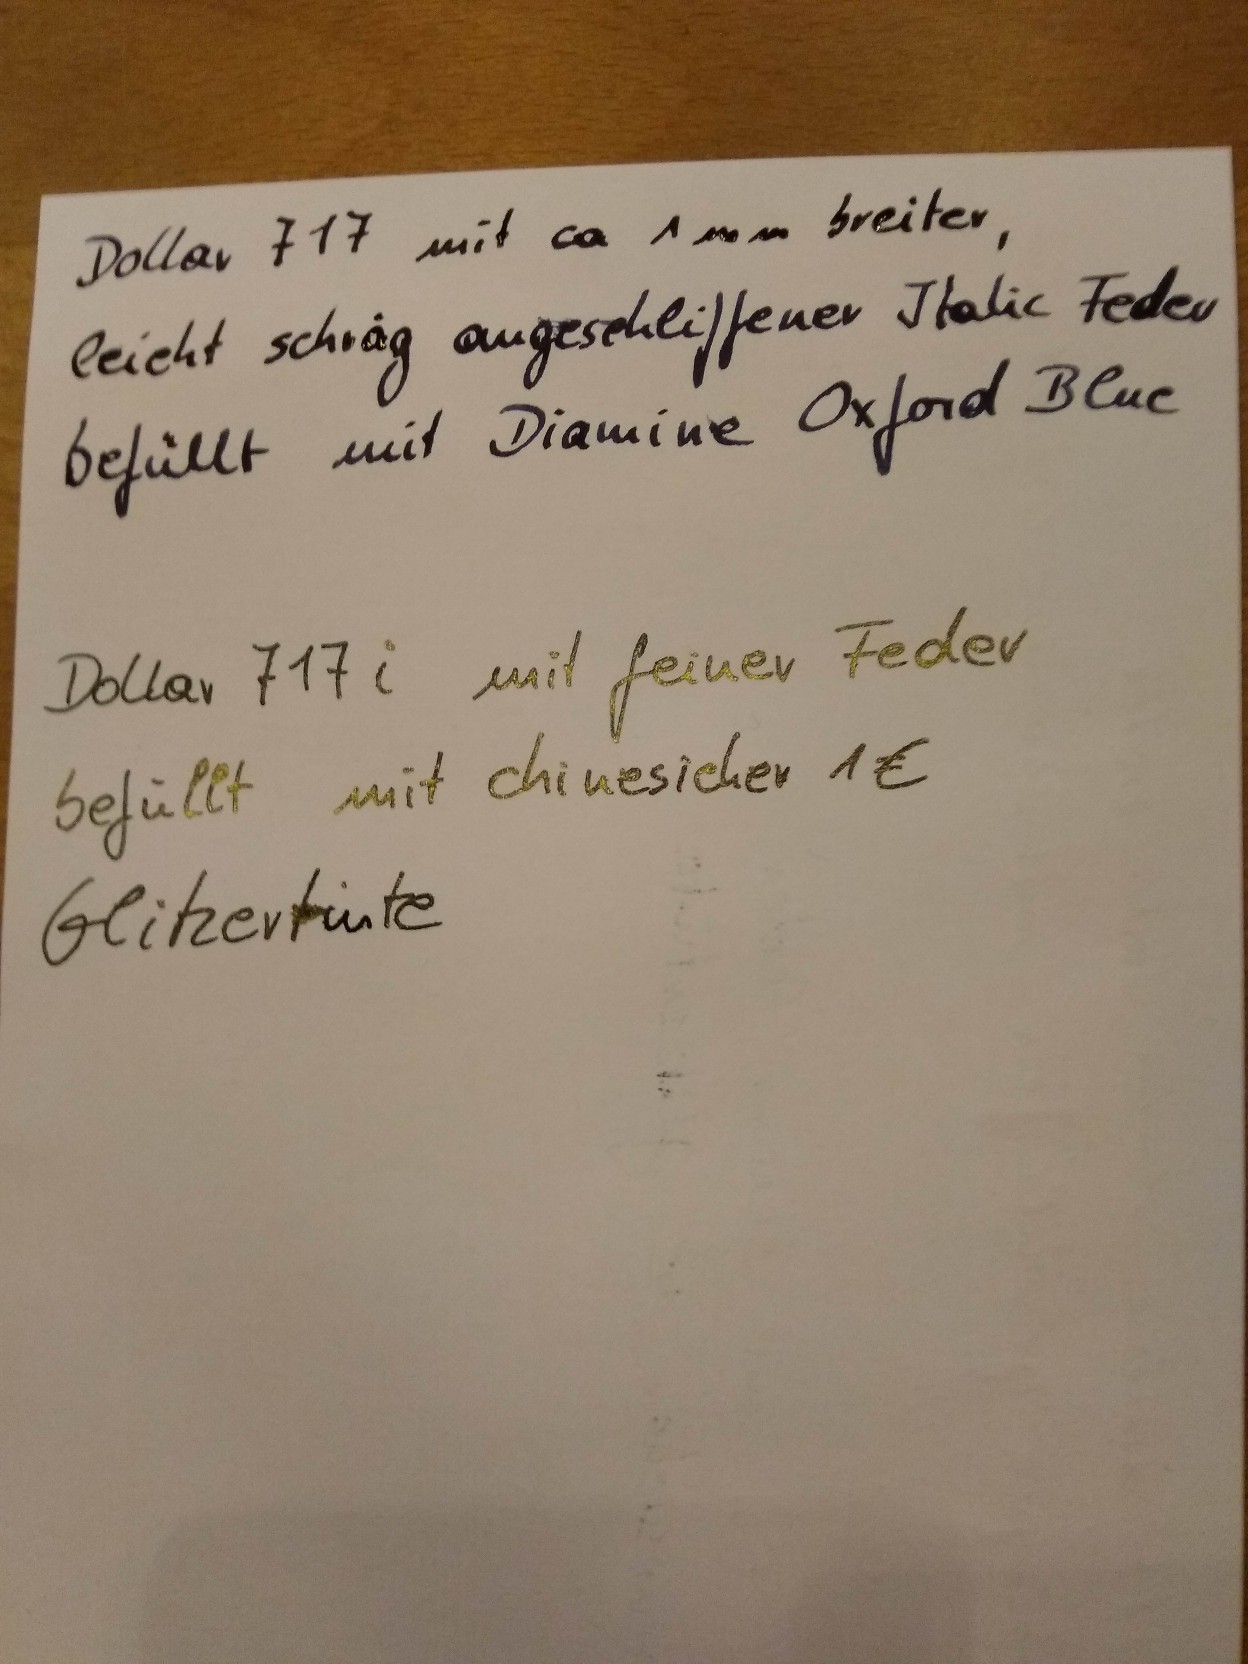 Dollar 717 mit ca 1mm breiter,
leicht schräg angeschliffener Italic Feder
befüllt mit Diamine Oxford Blue
Dollar 717i mit feiner Feder
befüllt mit chinesicher 1€
Glitzertinte